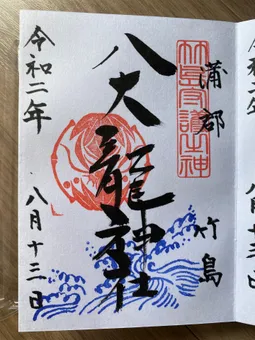 蒲郡
竹島
竹島守護神
八大龍神社
令和二年
八月十三日